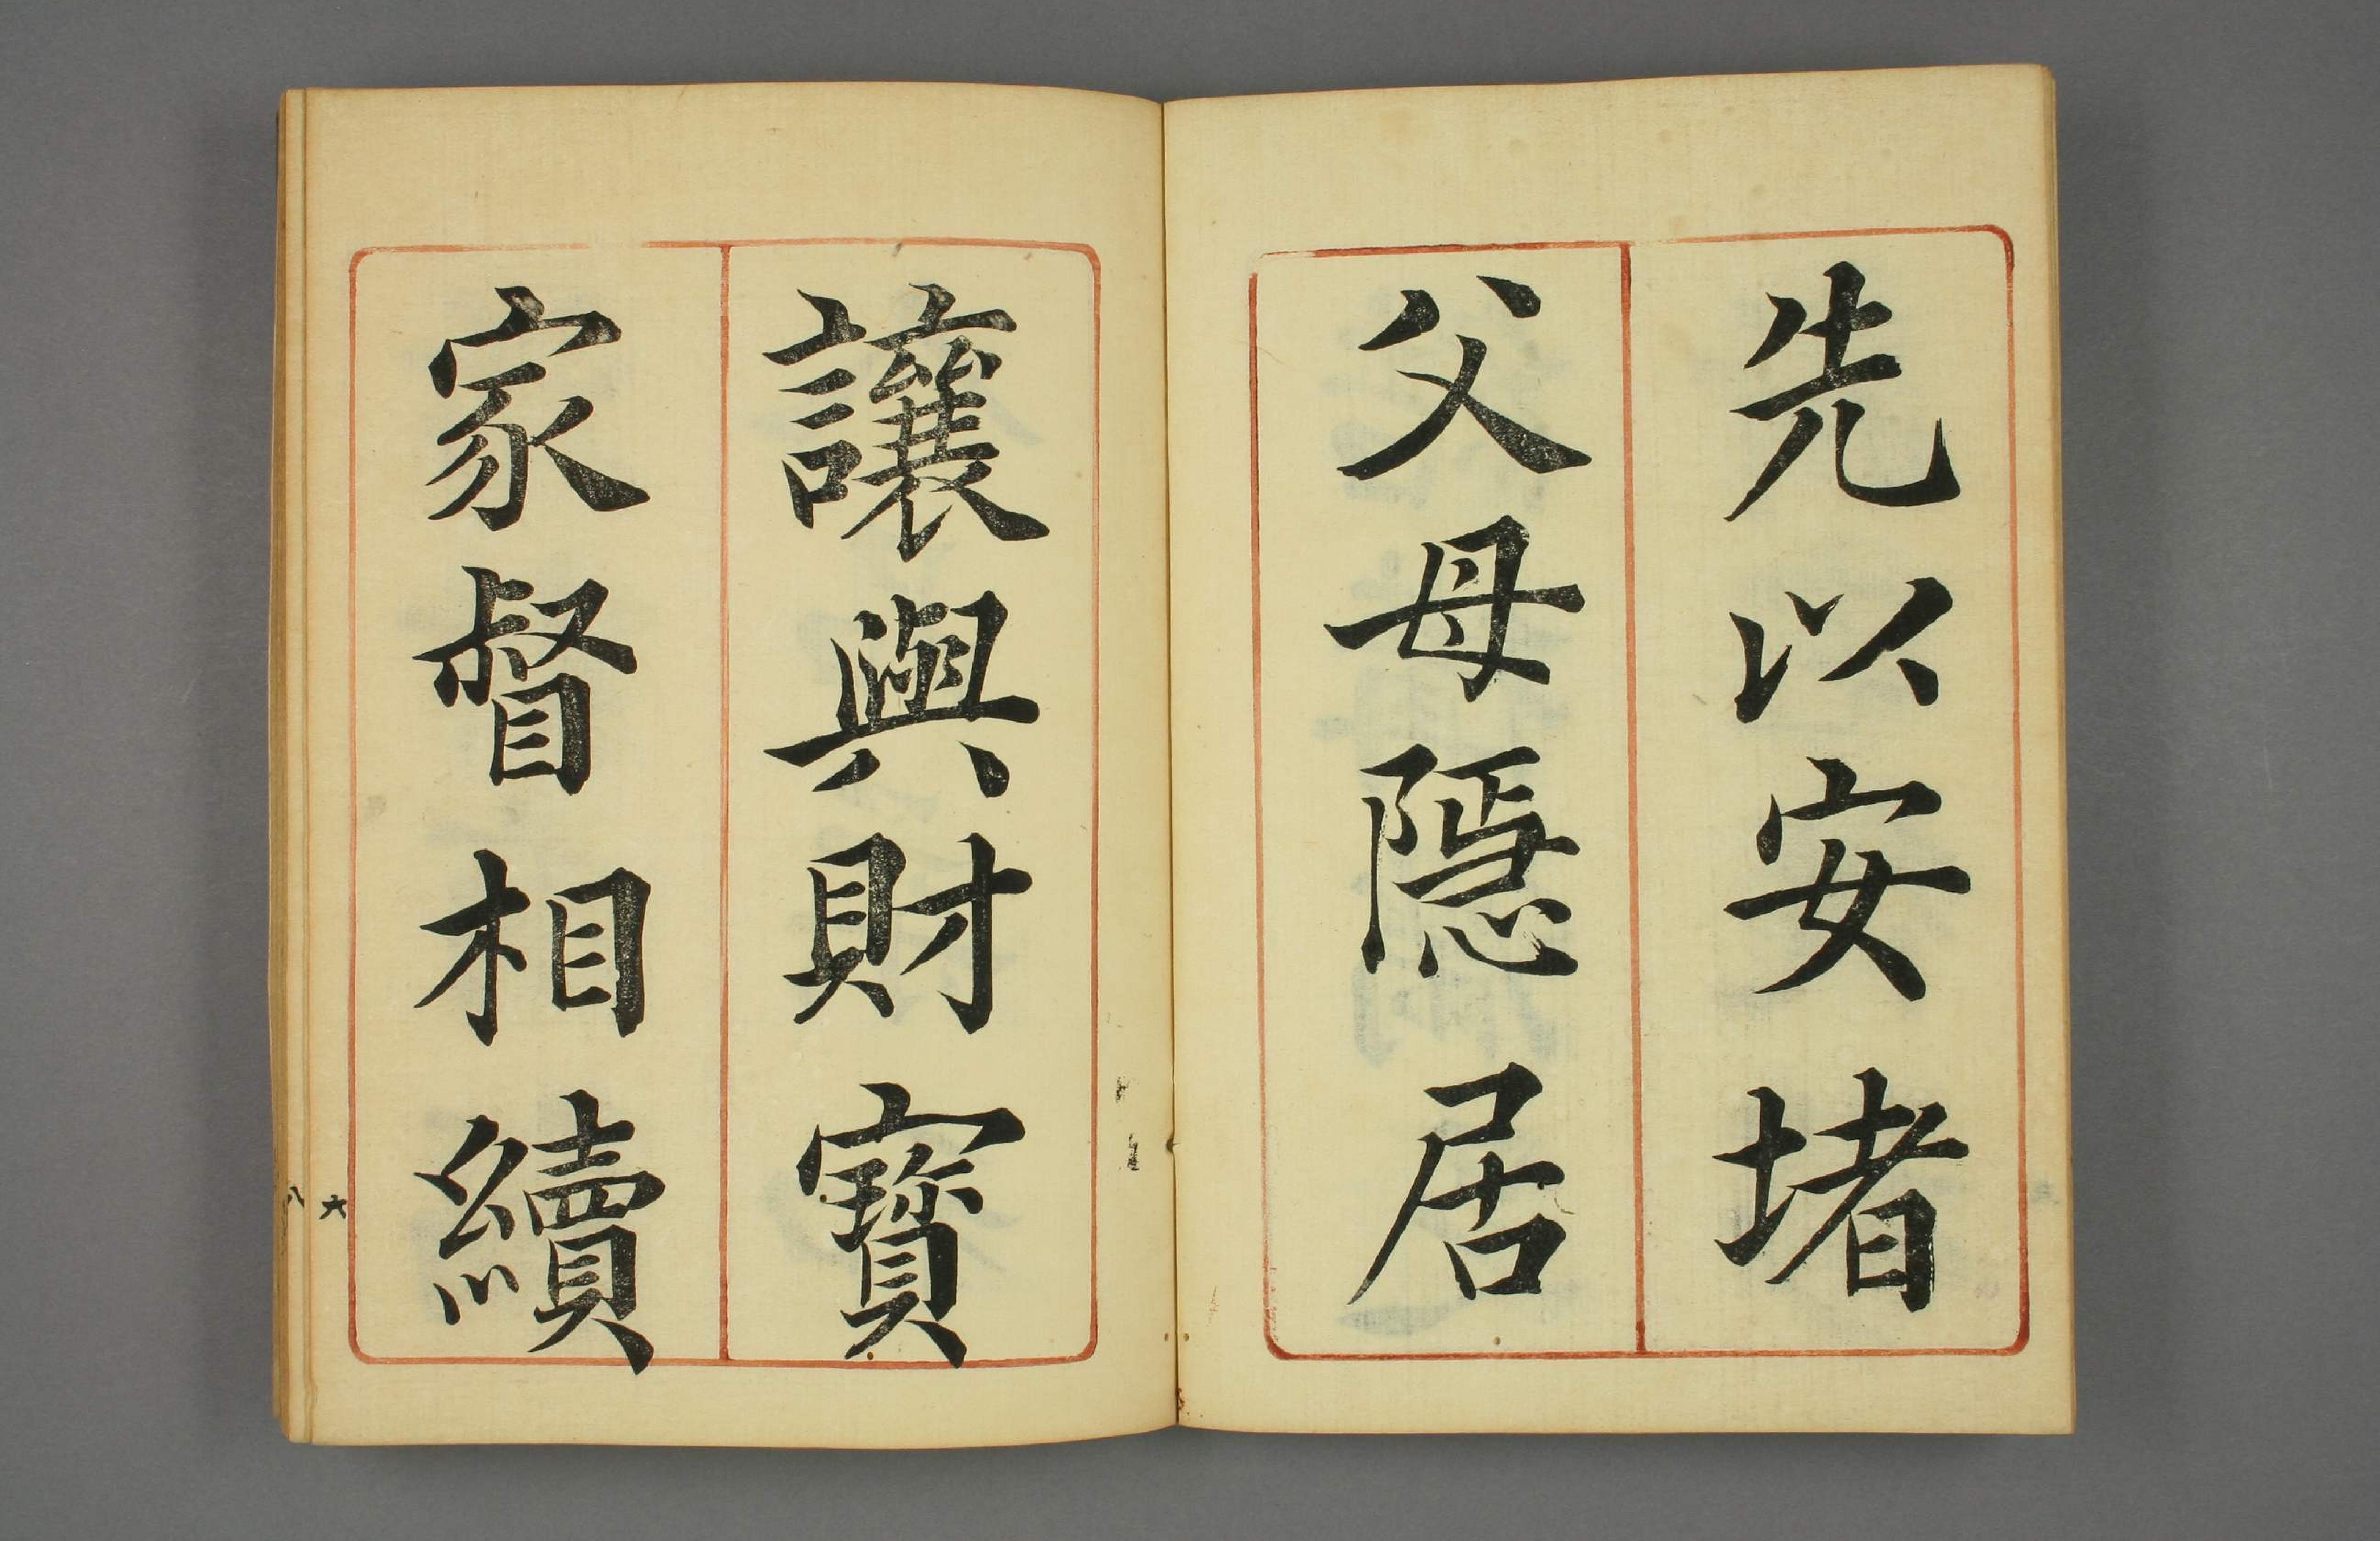 先以安堵
父母隱居
讓與財寶
家督相續
六
八